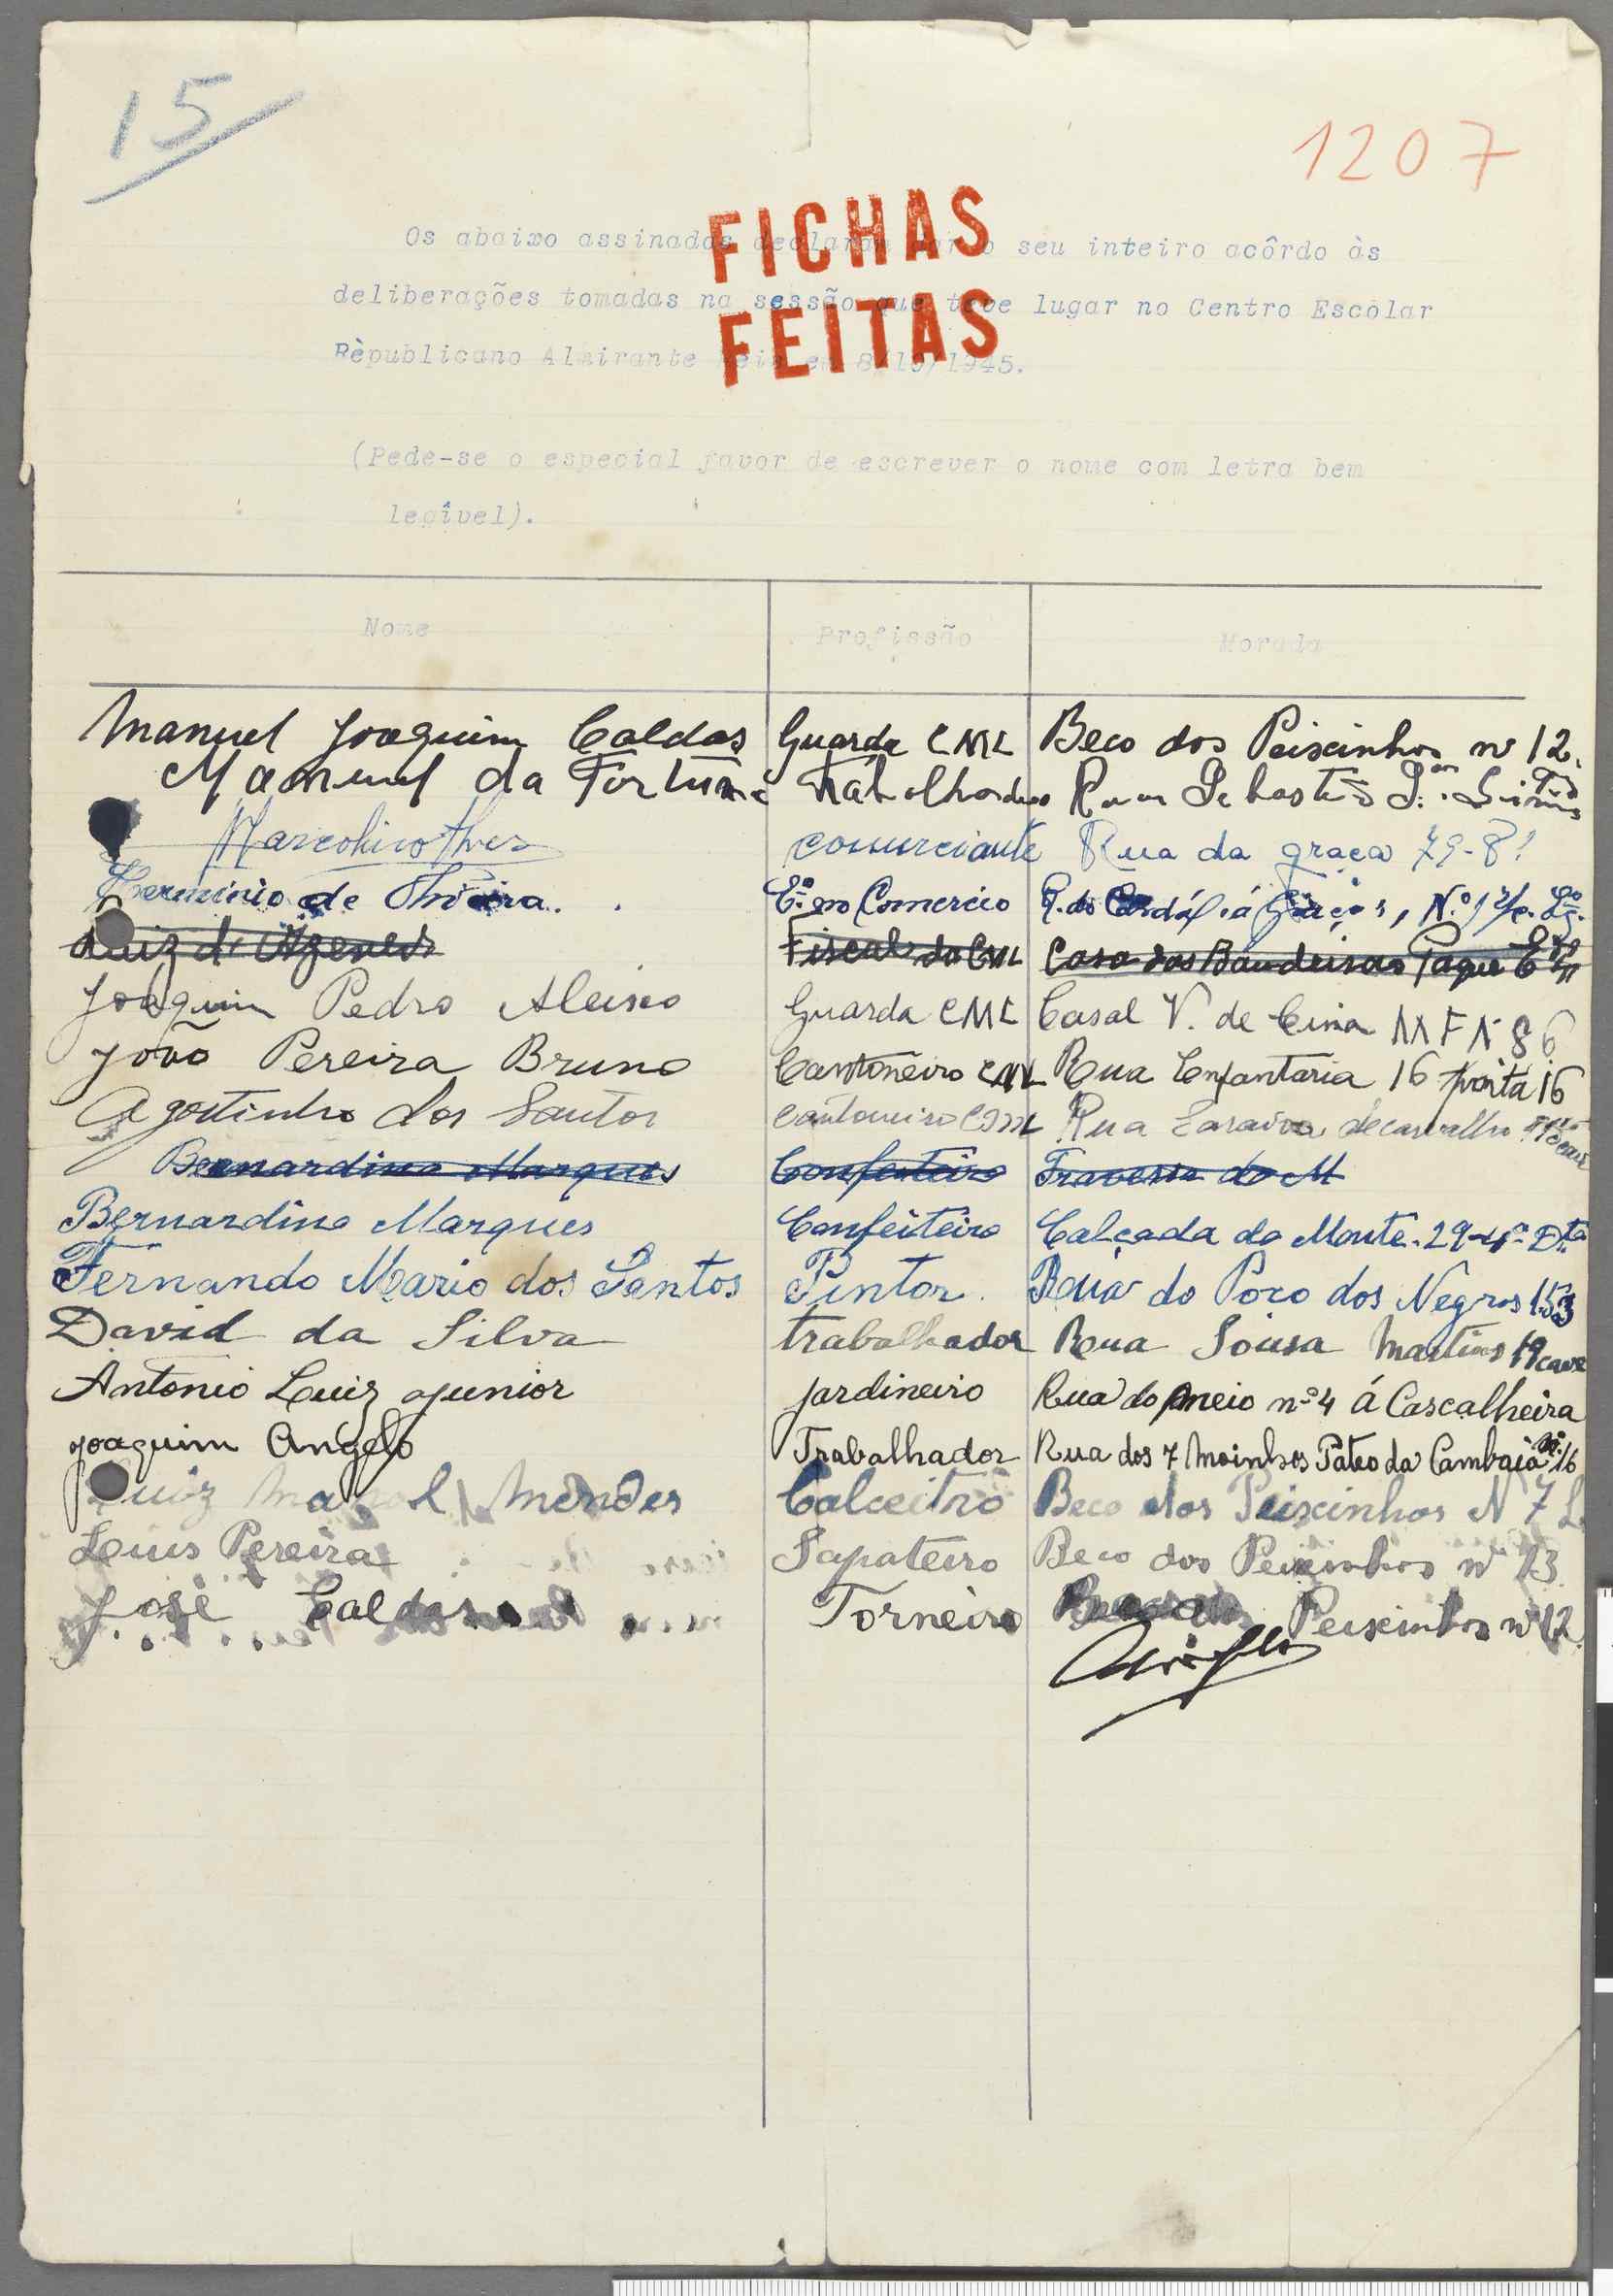 15
1207
FICHAS
FEITAS
Os abaixo assinados declaram dar o seu inteiro acôrdo às
deliberações tomadas na sessão que teve lugar no Centro Escolar
Rèpublicano Almirante Reis em 8/10/1945.
(Pede-se o especial favor de escrever o nome com letra bem
legível).
Nome Profissão Morada
Manuel Joaquim Caldas Guarda CML Beco dos Peixinhos nº 12.
Manuel da Fortuna Trabalhador Rua Sebastião
Marcolino Alves comerciante Rua da graça 79-8
Herminio de Oliveira. Eº. no Comercio R. do Cardal á Graça, N.º
Luiz d' Fiscal da CML Casa das Bandeiras Parque
Joaquim Pedro Aleixo Guarda CML Casal V. de Cima M F N 86
João Pereira Bruno Cantoneiro CML Rua Enfantaria 16 porta 16
Agostinho dos Santos Cantoneiro CML Rua Saraiva de carvalho
Bernardino Marques Confeiteiro Travessa do M
Bernardino Marques Confeiteiro Calçada do Monte. 29-4º Dtº
Fernando Mario dos Santos Pintor. Rua do Poço dos Negros 153
David da Silva trabalhador Rua Sousa Martins 19 cave
Antonio Luiz Junior jardineiro Rua do meio nº 4 á Cascalheira
Joaquim Angelo Trabalhador Rua dos 7 Moinhos Páteo da Cambaia Nº 16
Luiz Manoel Mendes Calceitro Beco dos Peixinhos N 7 L
Luis Pereira Sapateiro Beco dos Peixinhos nº 13
José Caldas Torneiro Peixinhos nº 12